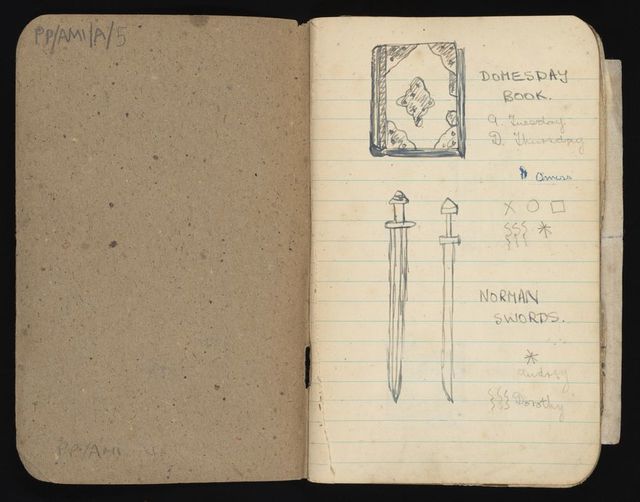 PP/AMI/A/5
PP/AMI
DOMESDAY
BOOK.
A. Tuesday
D. Thursday
NORMAN
SWORDS.
Audrey
Dorothy